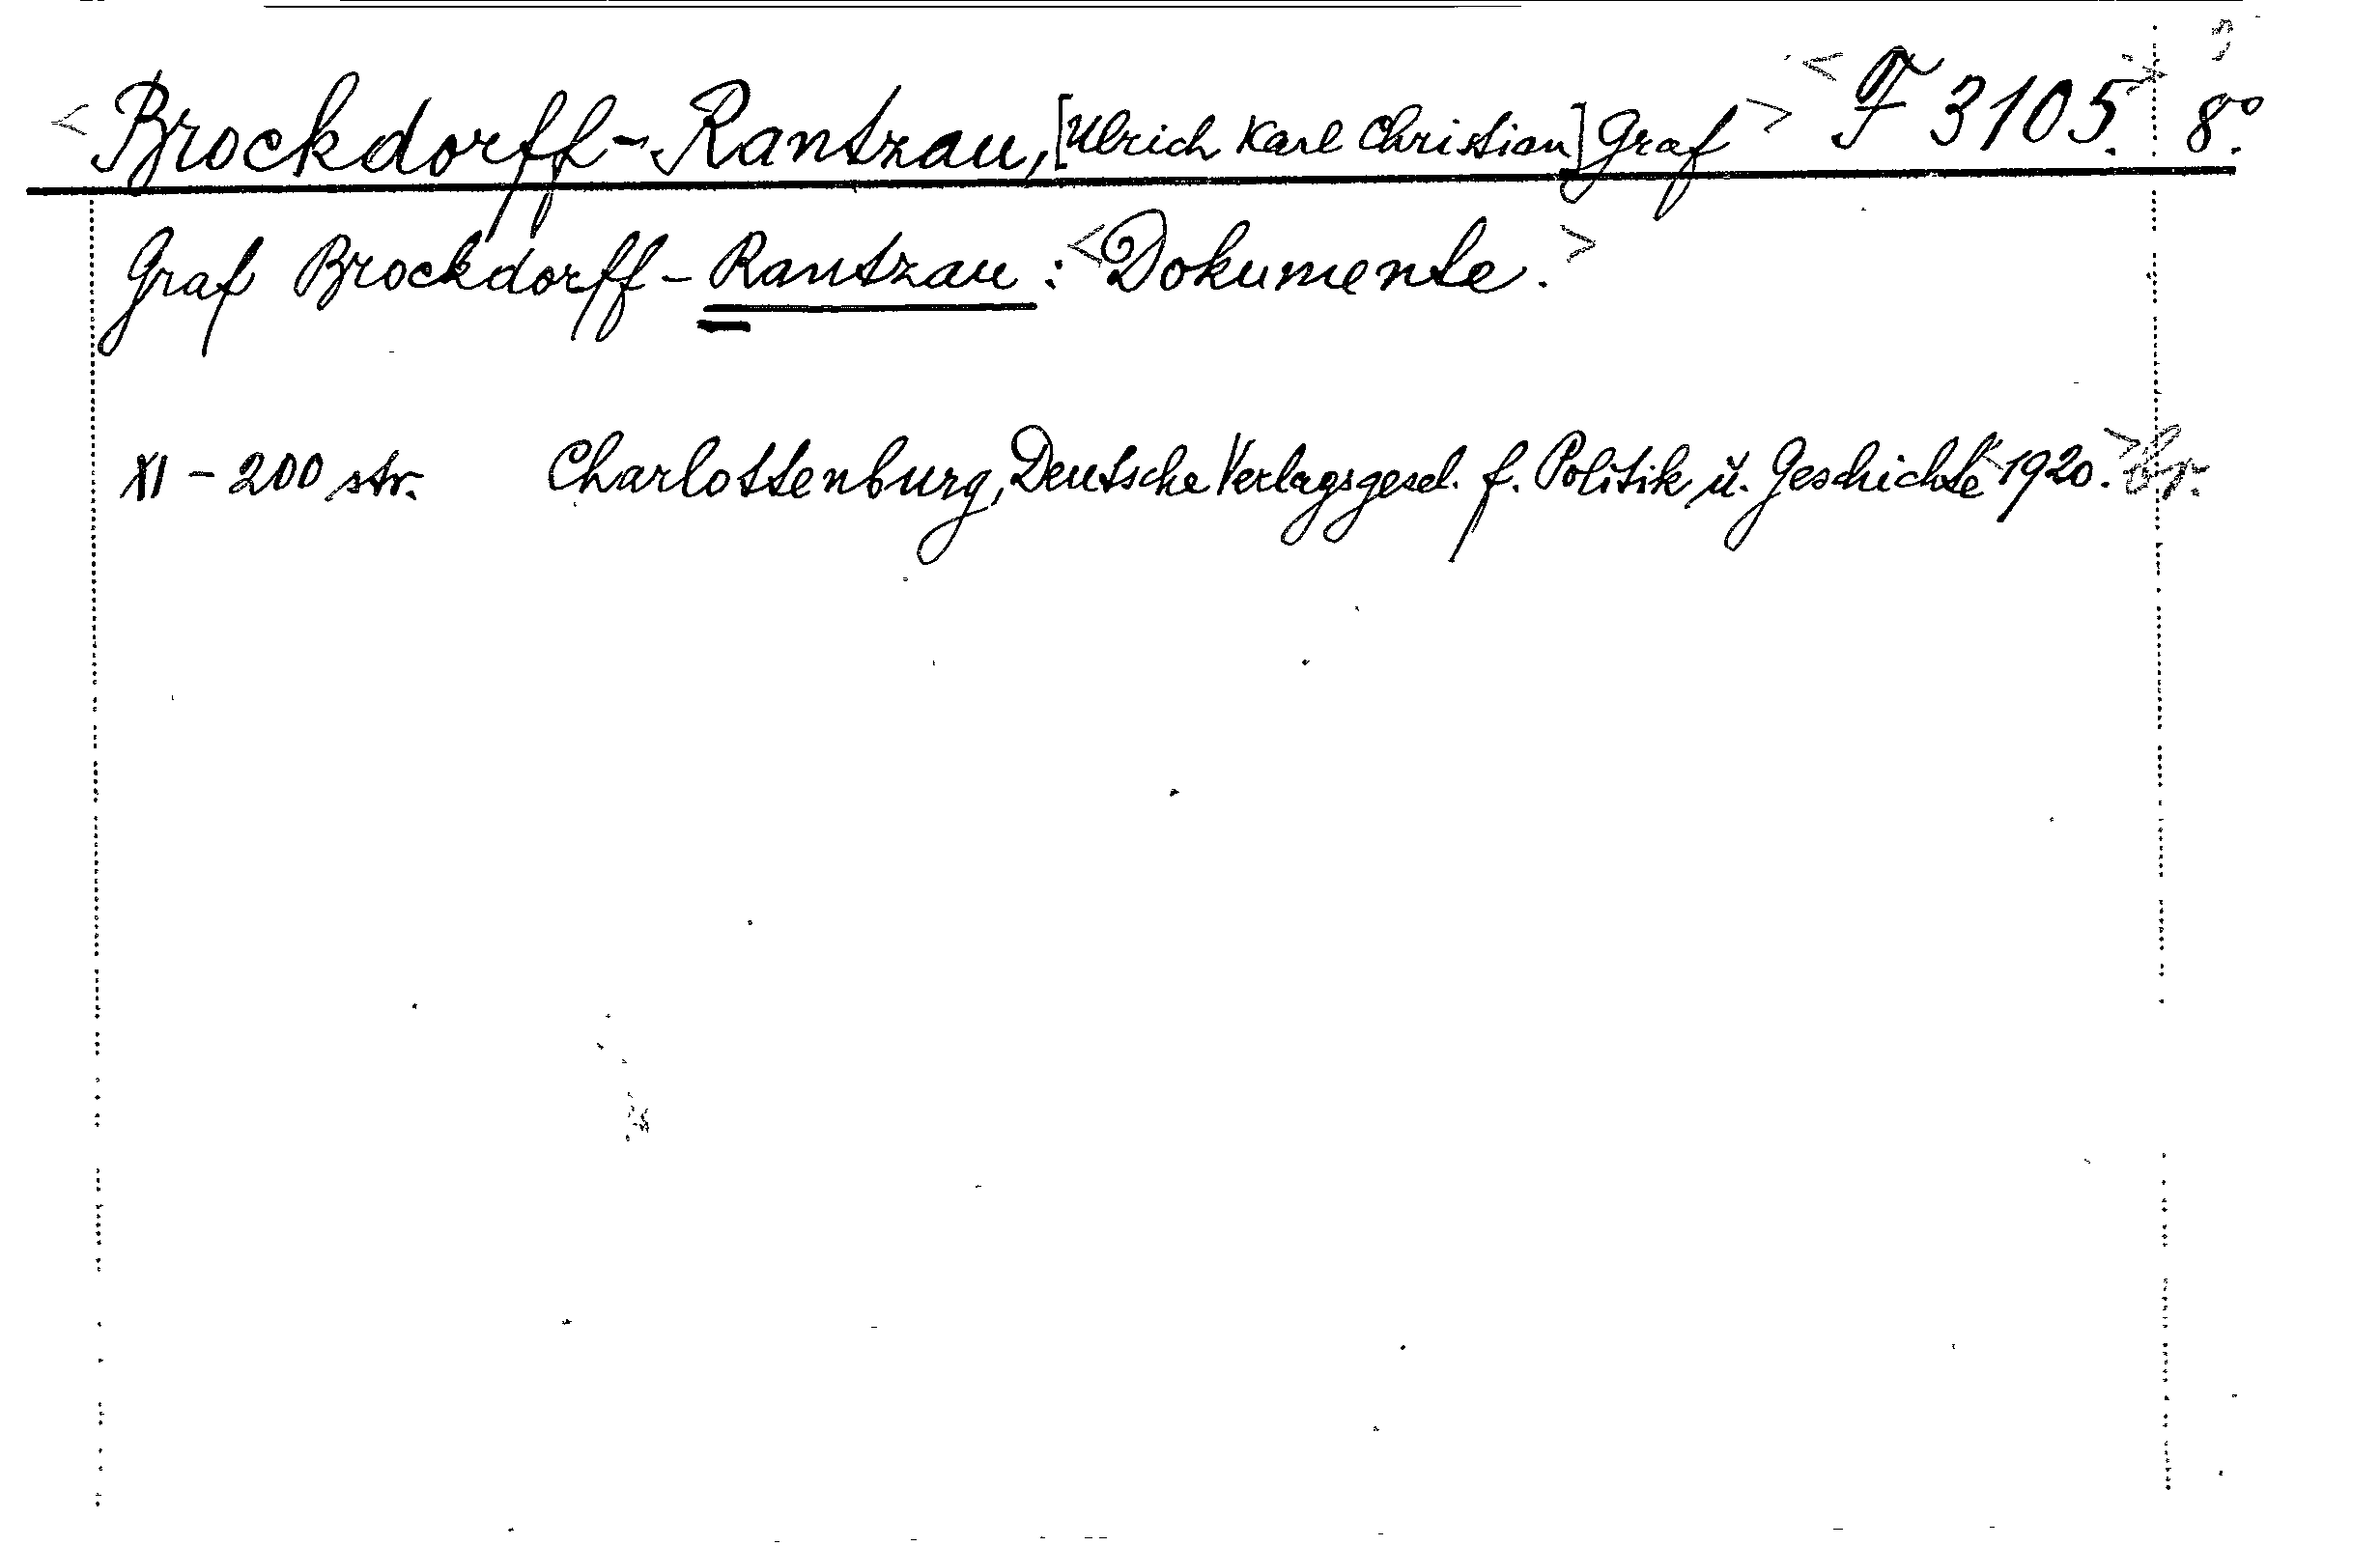 <Brockdorff-Rantzau, [Ulrich Karl Christian] Graf> <F 3105.> 8°.
Graf Brockdorff-Rantzau: <Dokumente.>
XI - 200 str. Charlottenburg, Deutsche Verlagsgesel. f. Politik u. Geschichte <1920.>